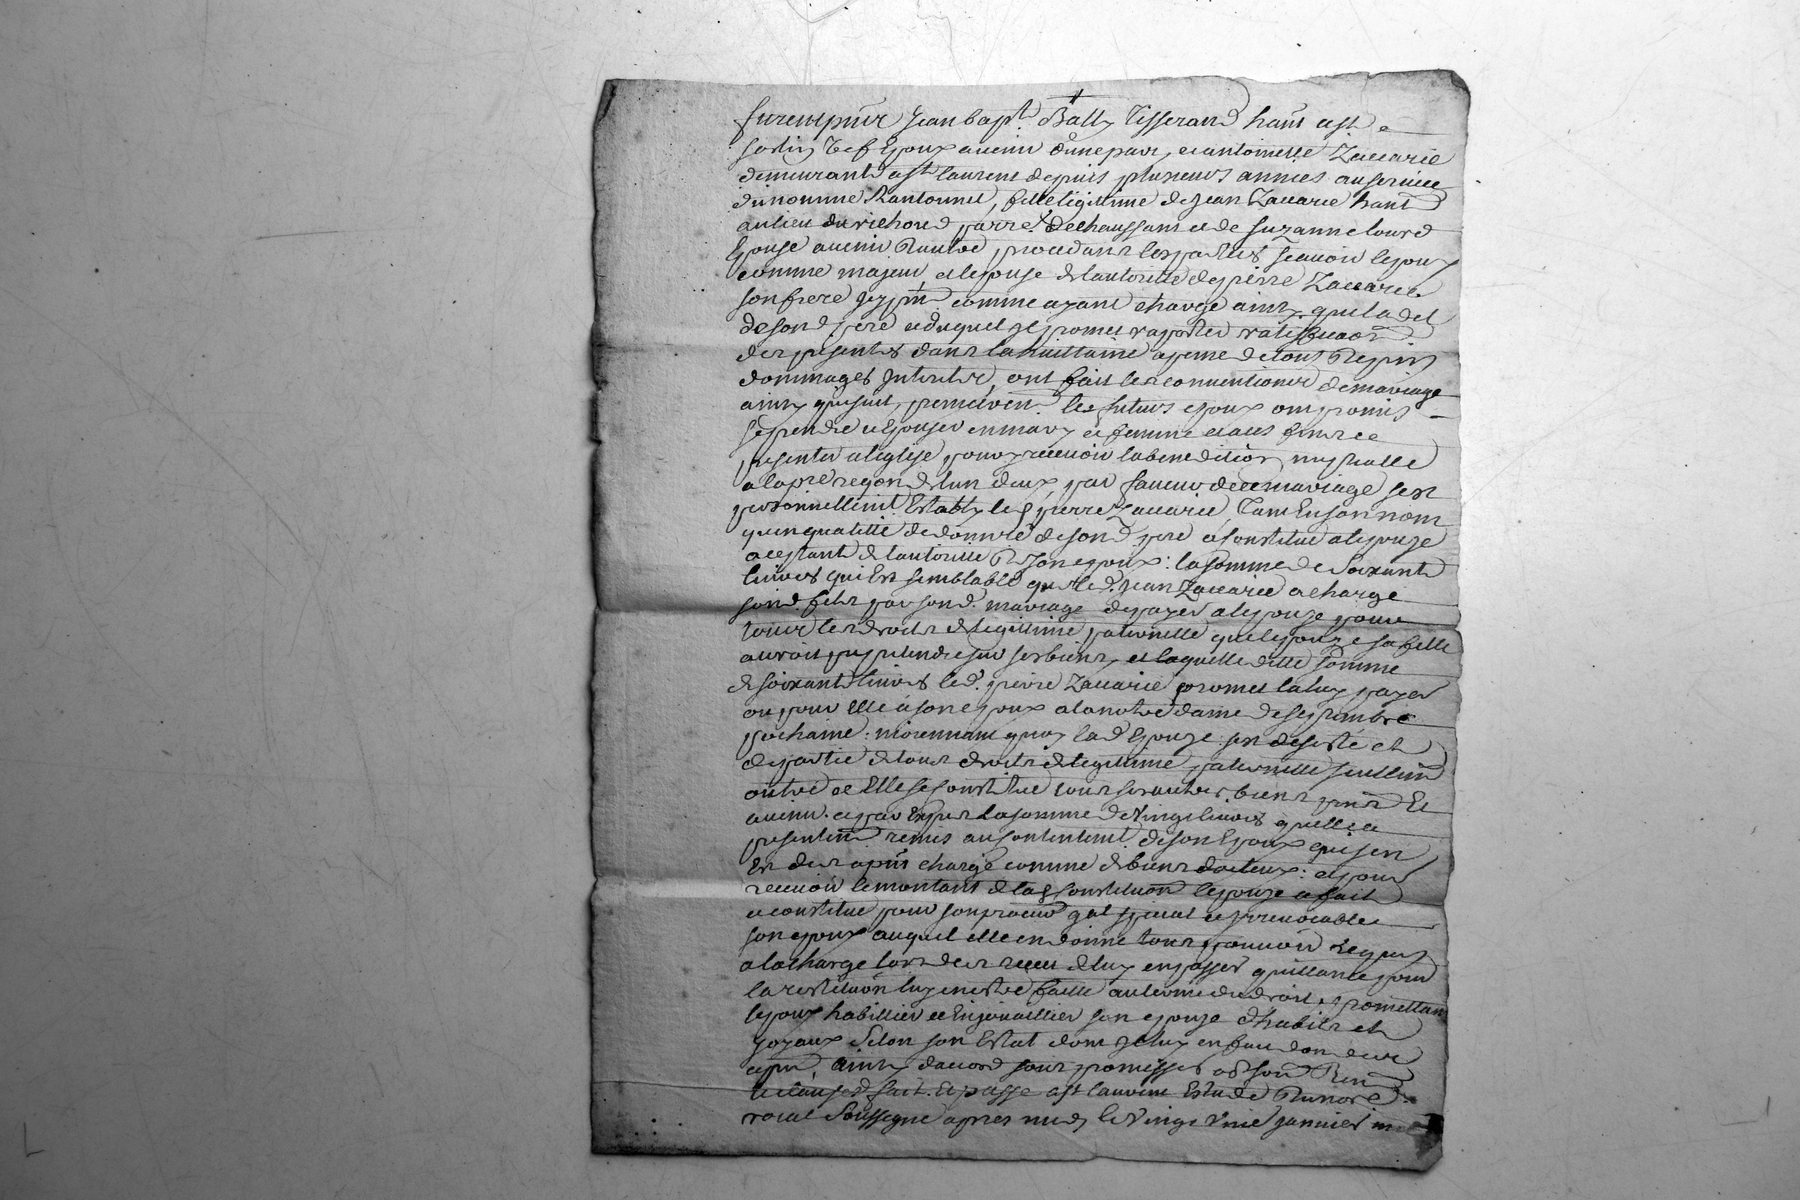 furent pnts Jean bapte. Bally Tisserand hant a st
Joseph epoux avenir d'une part, et antoinette Zacarie
demeurant a st laurent depuis plusieurs annees au service
du nomme fille legitime de Jean Zacarie hant
au lieu du richoud parre dechaussans et de Suzanne lourd
Epouse avenir d'autre procedant les parties scavoir lepoux
comme majeur, et lepouse de lautoritte de pierre Zacarie
son frere jcy pnt comme ayant charge ainsy que la de
de sond pere et duquel jl promet raporter ratiffication
des presentes dans la huittaine a peine de tous depens
dommages Interets, ont fait les conventions de mariage
ainsy quisuit, premierement les futurs epoux ont promis
se prendre et Epouser en mary et femme et a ces fins se
presenter a leglise pour y recevoir la benediction nuptialle
a la pre reqon de lun deux, par faveur de ce mariage sest
personnellemt Estably led pierre Zacarie Tant En son nom
quen qualitte de de sond pere a Constitue a lepouze
aceptant de lautoritte de son epoux: la somme de Soixante
livres qui Est semblable que led. Jean Zacarie a charge
sond. fils par sond. mariage de payer a lepouze pour
tous les droits de legittime paternelle que lepouze sa fille
auroit peu pretendre sur ses biens, et laquelle ditte somme
de soixante livres led. pierre Zacarie promet la luy payer
ou pour Elle a son epoux a la notre dame de septembre
prochaine. moiennant quoy lad Epouze sest desisté et
departie de tous droits de legittime paternelle seullemt
outre ce Elle se Constitue tous ses autres biens pnts Et
avenir. et par Expres la somme de Vingt livres quelle a
presentemt remis au Contentemt de son Epoux qui sen
Est des apnt chargé comme de biens doteaux: et pour
recevoir le montant de lad Constitution lepouze a fait
et constitue pour son procur gal special et jrrevocable
son epoux auquel elle en donne tous pouvoir requis
a la charge lors des recus de luy en passer quittance pour
la restitution luy en estre faitte au terme du droit, et promettant
lepoux habillier et Enjouaillier son epouze d'habits et
joyaux Selon son Estat dont jl luy en fait don des
apnt, ainsy dacord sous promisses obligon Renon
et clauses fait Et passe a st laurent Estude Du nore
roial Soussigne apres midy le Vingt Unie janvier m